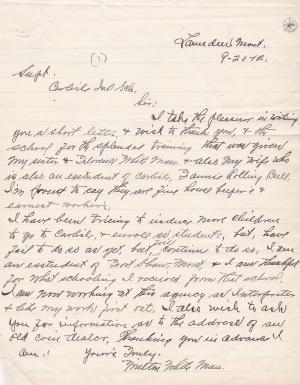 Lame deer, Mont.
9-20-12.
(1)
Supt.
Carlisle Ind Sch.
Sir:
I take the pleasure in writing
you a short letter, & wish to thank you, & the
school for the splendid training that was given
my sister & Florence White Man & also my wife who
is also an exstudent of Carlisle, Fannie Rolling Bull.
I'm proud to say they are fine house keepers &
earnest workers,
I have been trieing to induce more children
to go to Carlisle, & enroll as students, but, have
fail to do so as yet, but, continue to do so, I am
an exstudent of Fort Shaw, Mont, & I am thankful
for what schooling I received from that school,
I am now working at this agency as Interpreter
& like my work first rate. I also wish to ask
you for information as to the address of an
old coin dealer, Thanking you in advance I
am:
Yours Truly.
Milton White Man.